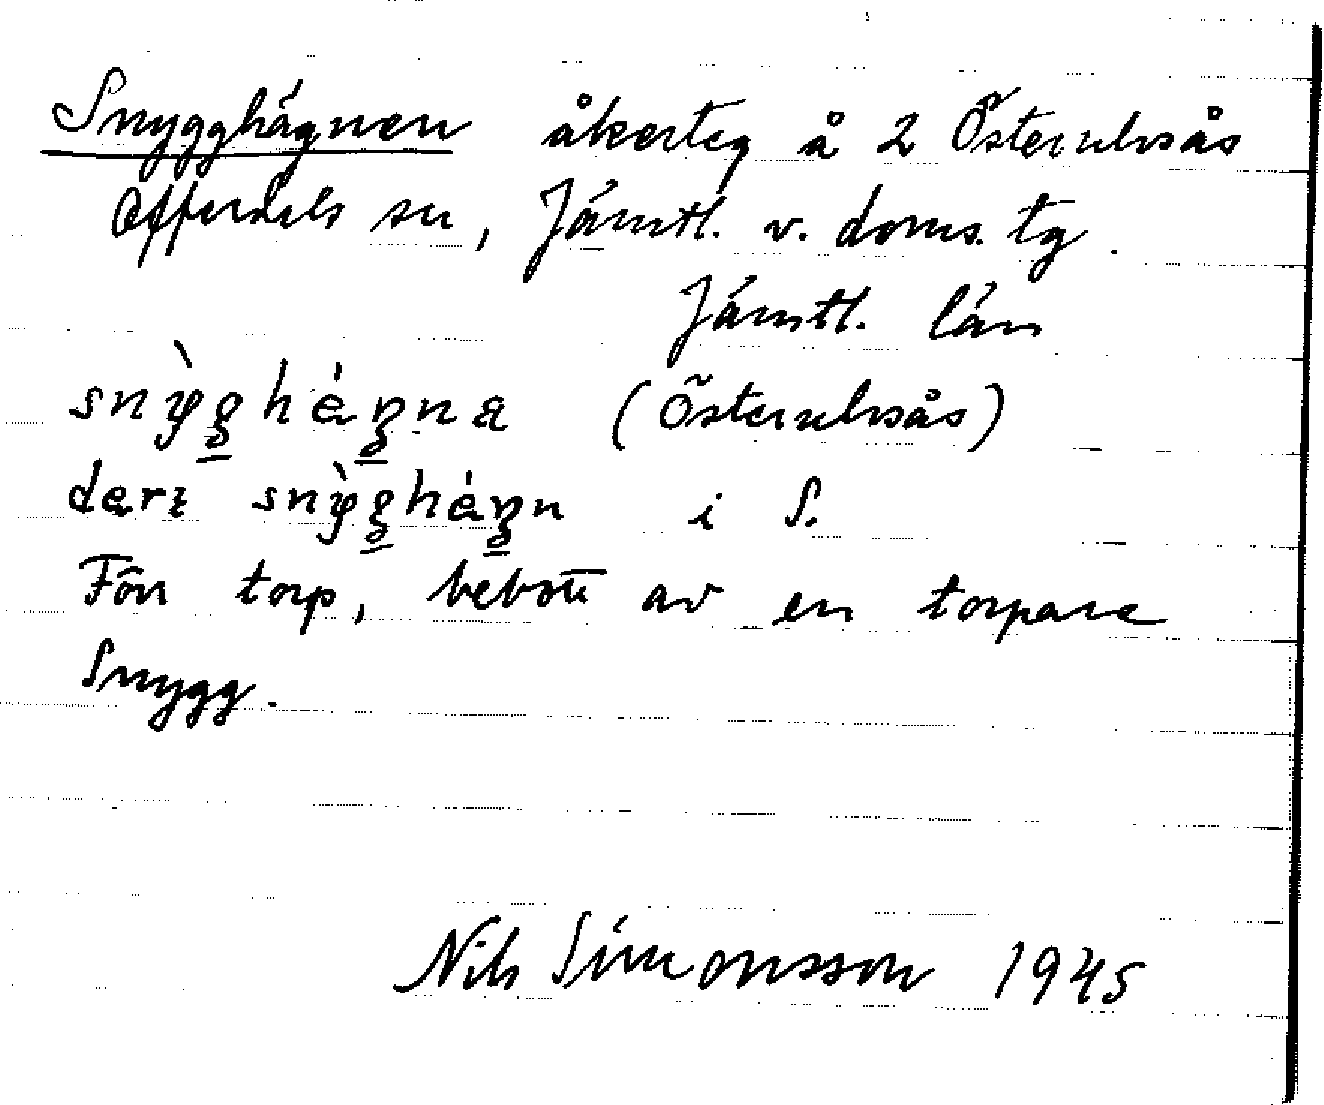 Snygghägnen åkerteg å 2 Österulvsås
Offerdals sn, Jämtl. v. doms. tg.
Jämtl. län
snỳg̱há̱ŋna (Österulvsås)
derɩ snỳg̱háŋn i S.
Förr torp, bebott av en torpare
Snygg.
Nils Simonsson 1945